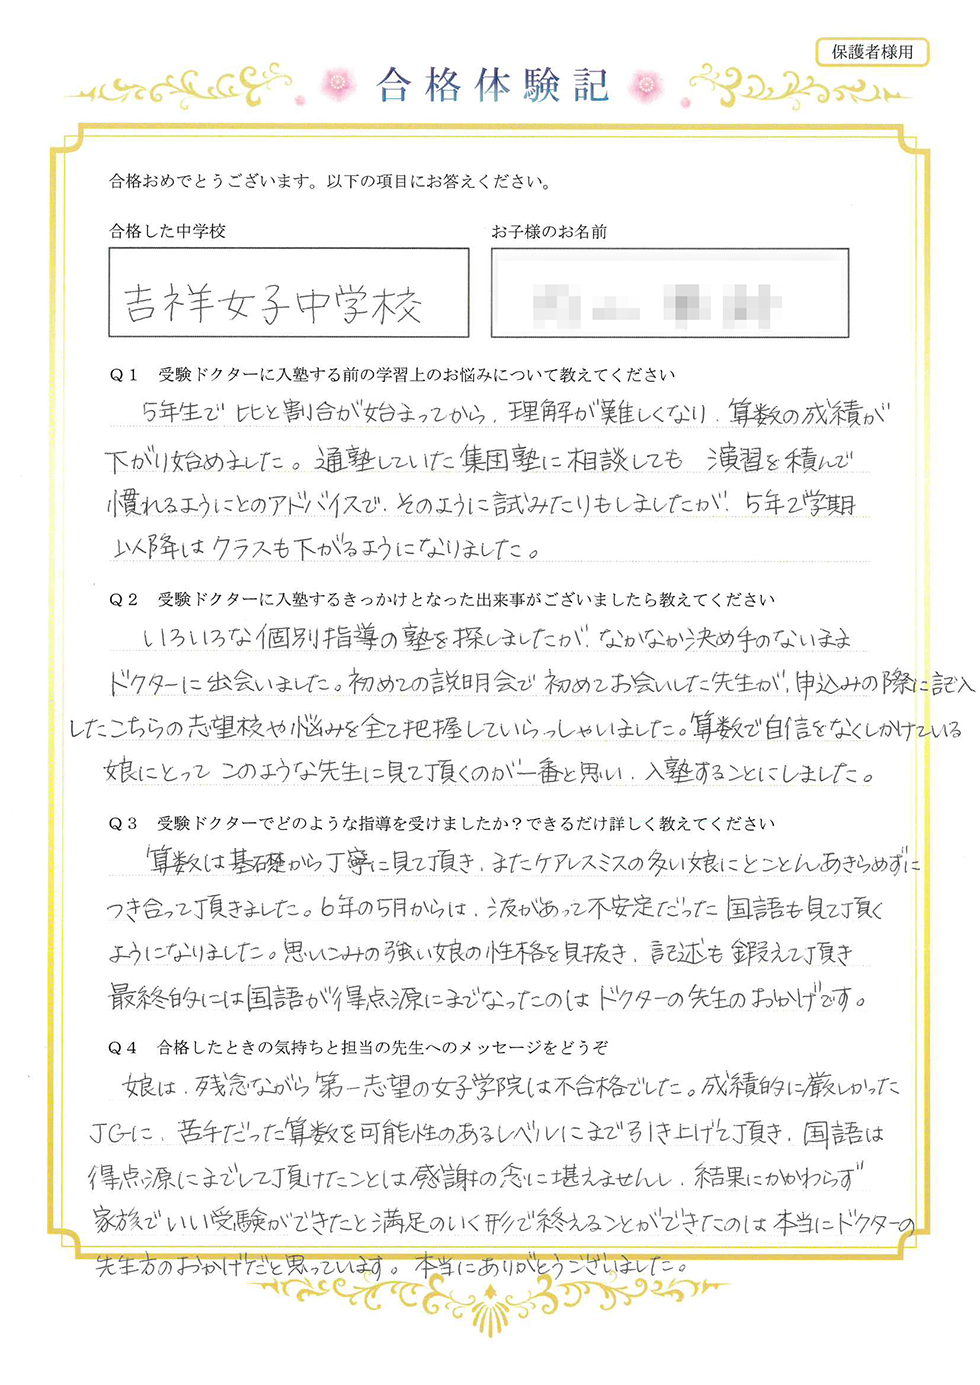 保護者様用
合格体験記
合格おめでとうございます。以下の項目にお答えください。
合格した中学校
お子様のお名前
吉祥女子中学校
Q1 受験ドクターに入塾する前の学習上のお悩みについて教えてください
5年生で比と割合が始まってから、理解が難しくなり、算数の成績が
下がり始めました。通塾していた集団塾に相談しても 演習を積んで
慣れるようにとのアドバイスで、そのように試みたりもしましたが、5年2学期
以降はクラスも下がるようになりました。
Q2 受験ドクターに入塾するきっかけとなった出来事がございましたら教えてください
いろいろな個別指導の塾を探しましたが、なかなか決め手のないまま
ドクターに出会いました。初めての説明会で初めてお会いした先生が、申込みの際に記入
したこちらの志望校や悩みを全て把握していらっしゃいました。算数で自信をなくしかけている
娘にとってこのような先生に見て頂くのが一番と思い、入塾することにしました。
Q3 受験ドクターでどのような指導を受けましたか?できるだけ詳しく教えてください
算数は基礎から丁寧に見て頂き、またケアレスミスの多い娘にとことんあきらめずに
つき合って頂きました。6年の5月からは、波があって不安定だった国語も見て頂く
ようになりました。思いこみの強い娘の性格を見抜き、記述も鍛えて頂き
最終的には国語が得点源にまでなったのはドクターの先生のおかげです。
Q4 合格したときの気持ちと担当の先生へのメッセージをどうぞ
娘は、残念ながら第一志望の女子学院は不合格でした。成績的に厳しかった
JGに、苦手だった算数を可能性のあるレベルにまで引き上げて頂き、国語は
得点源にまでして頂けたことは感謝の念に堪えませんし、結果にかかわらず
家族でいい受験ができたと満足のいく形で終えることができたのは本当にドクターの
先生方のおかげだと思っています。本当にありがとうございました。